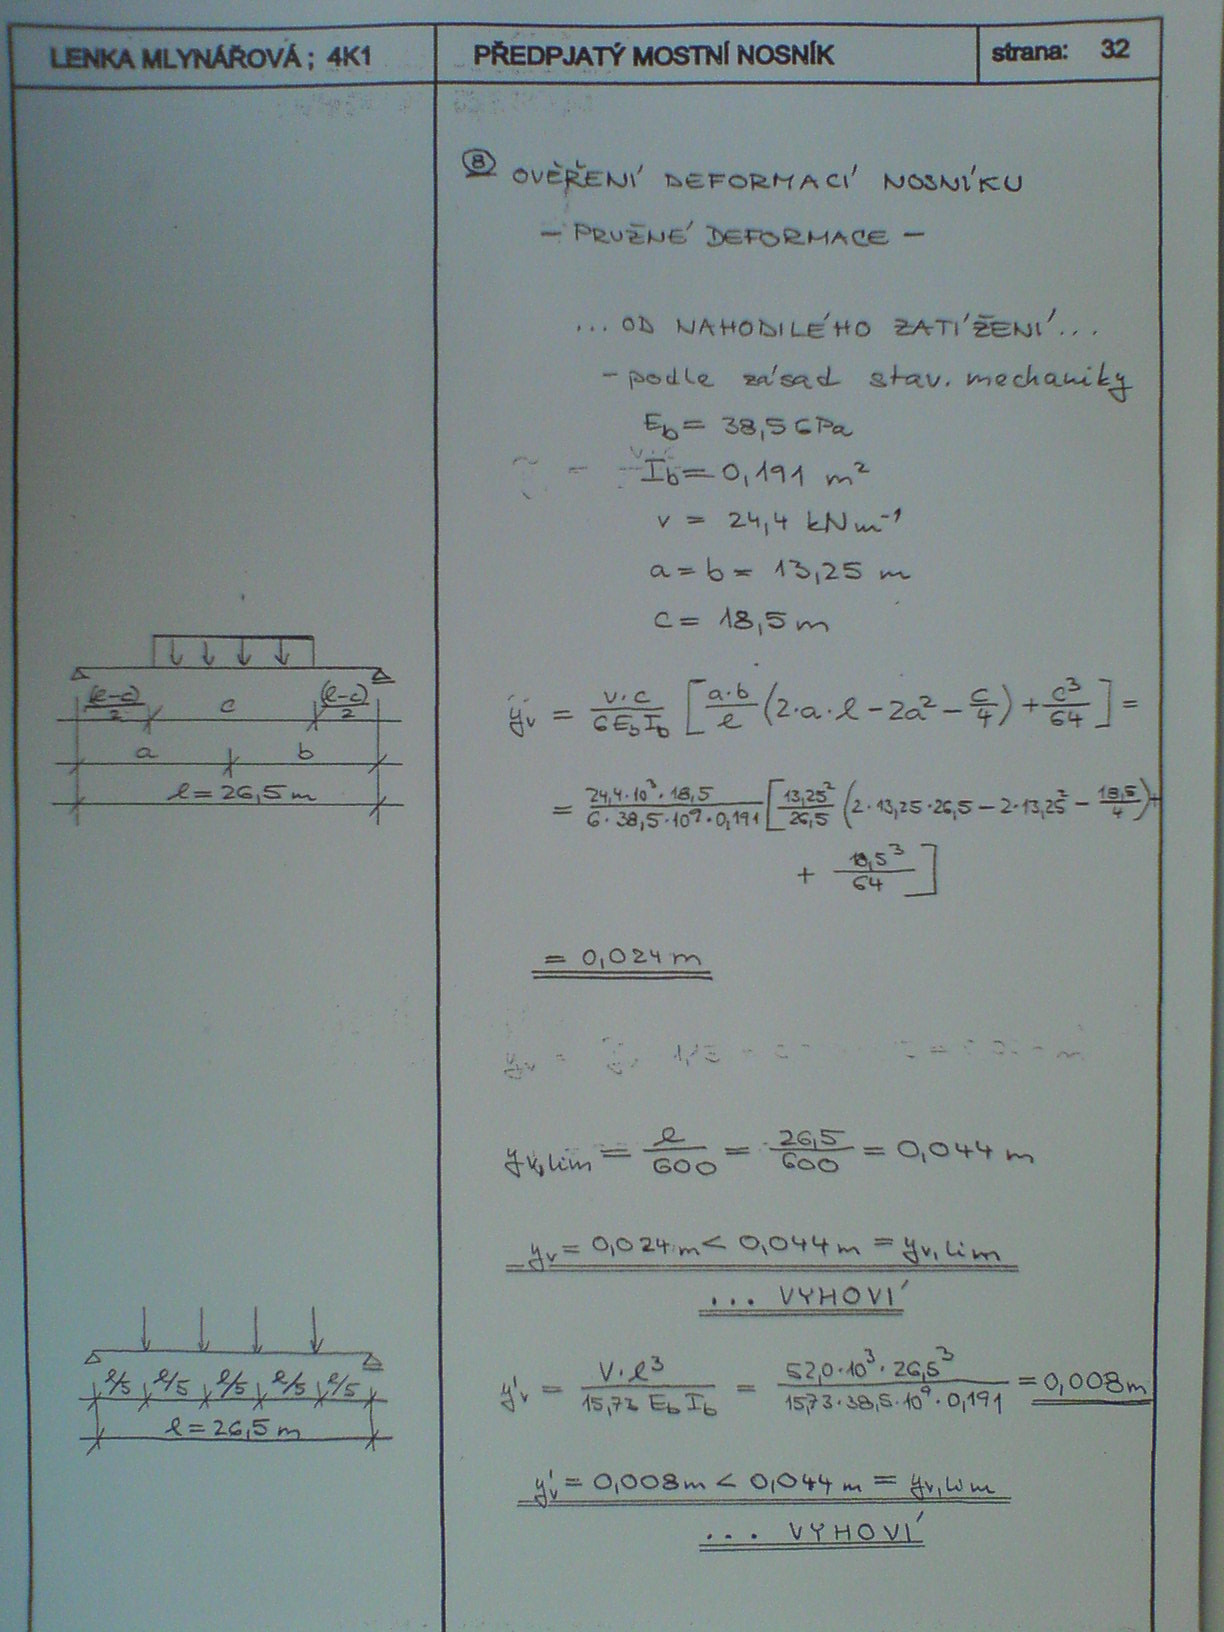 LENKA MLYNÁŘOVÁ ; 4K1
PŘEDPJATÝ MOSTNÍ NOSNÍK
strana: 32
8 OVĚŘENÍ DEFORMACÍ NOSNÍKU
- PRUŽNÉ DEFORMACE -
... OD NAHODILÉHO ZATÍŽENÍ ...
- podle zásad stav. mechaniky
E_b = 38,5 GPa
I_b = 0,191 m²
v = 24,4 kNm⁻¹
a = b = 13,25 m
c = 18,5 m
(l-c)/2 c (l-c)/2
a b
l = 26,5 m
y_v = v·c/6E_bI_b [a·b/l (2·a·l - 2a² - c/4) + c³/64] =
= 24,4·10³·18,5/6·38,5·10⁹·0,191 [13,25²/26,5 (2·13,25·26,5 - 2·13,25² - 18,5/4) +
+ 18,5³/64]
= 0,024 m
y_v,lim = l/600 = 26,5/600 = 0,044 m
y_v = 0,024 m < 0,044 m = y_v,lim
... VYHOVÍ
l/5 l/5 l/5 l/5 l/5
l = 26,5 m
y'_v = V·l³/15,73 E_b I_b = 52,0·10³·26,5³/15,73·38,5·10⁹·0,191 = 0,008 m
y'_v = 0,008 m < 0,044 m = y_v,lim
... VYHOVÍ